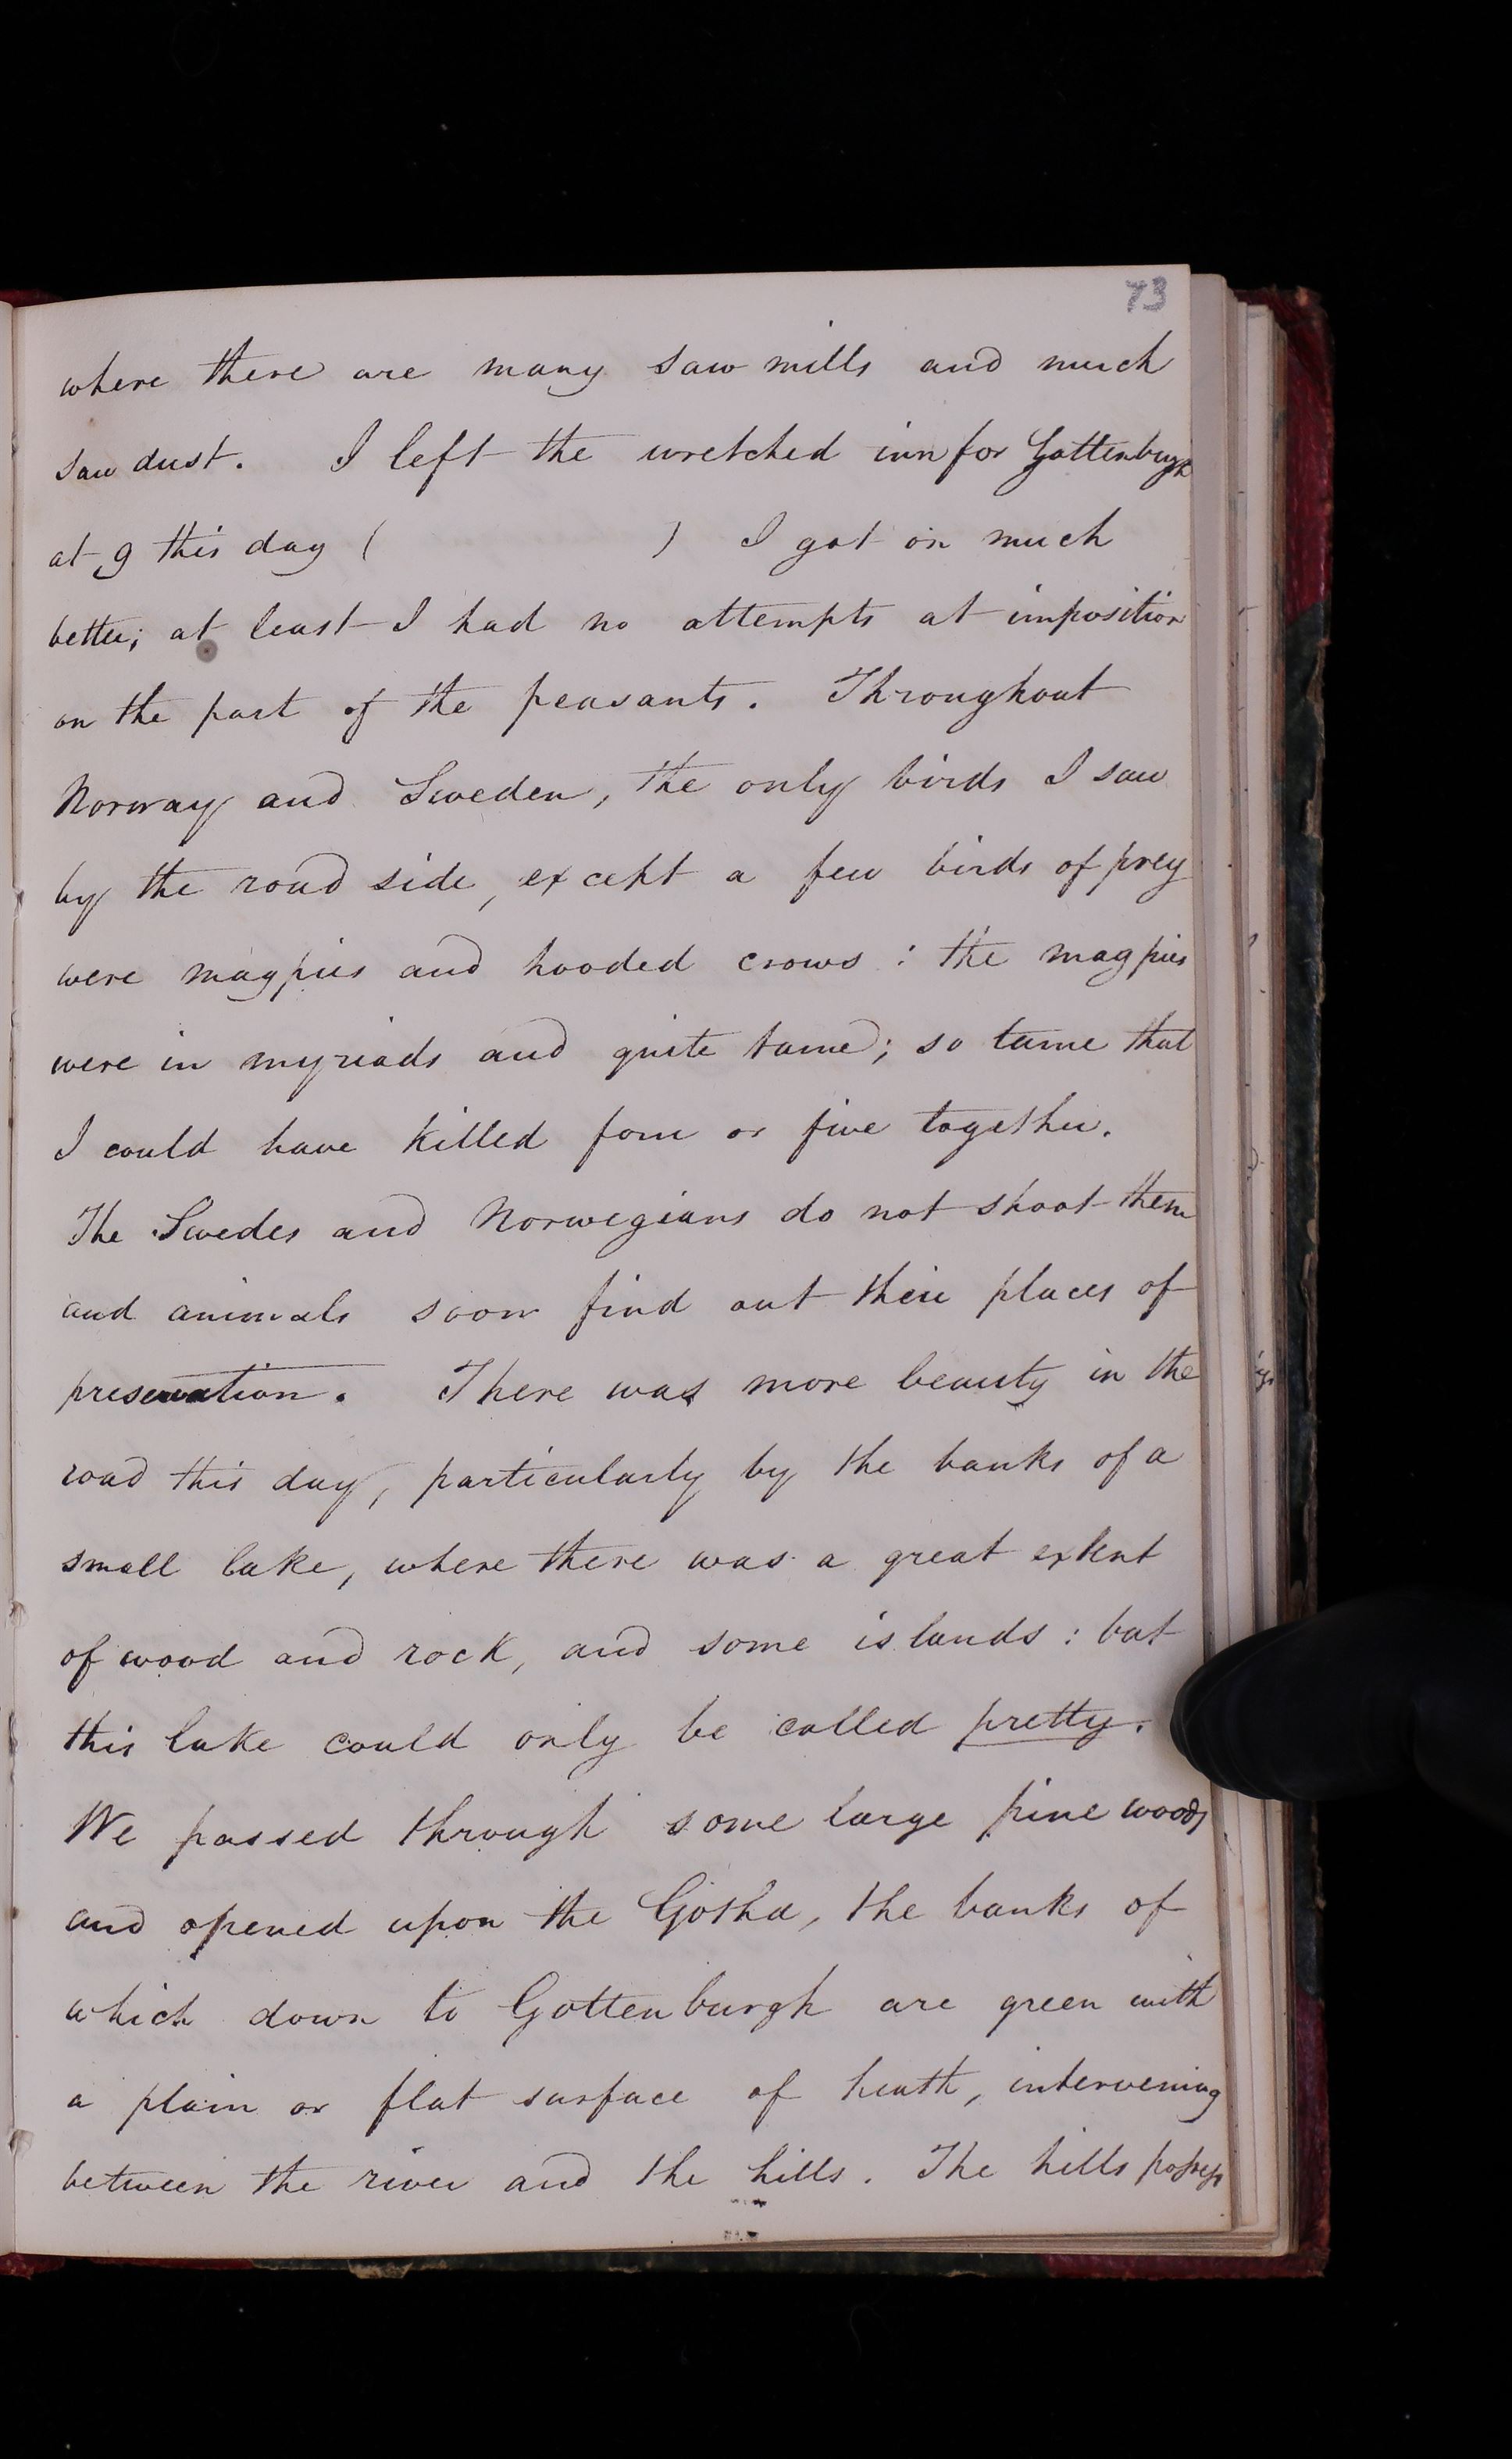 73
where there are many saw mills and much
saw dust. I left the wretched inn for Gottenburgh
at 9 this day ( ) I got on much
better; at least I had no attempts at imposition
on the part of the peasants. Throughout
Norway and Sweden, the only birds I saw
by the road side, except a few birds of prey
were magpies and hooded crows: the magpies
were in myriads and quite tame; so tame that
I could have killed four or five together.
The Swedes and Norwegians do not shoot them
and animals soon find out their places of
preservation. There was more beauty in the
road this day, particularly by the banks of a
small lake, where there was a great extent
of wood and rock, and some islands: but
this lake could only be called pretty.
We passed through some large pine woods
and opened upon the Gotha, the banks of
which down to Gottenburgh are green with
a plain or flat surface of heath, intervening
between the river and the hills. The hills possess